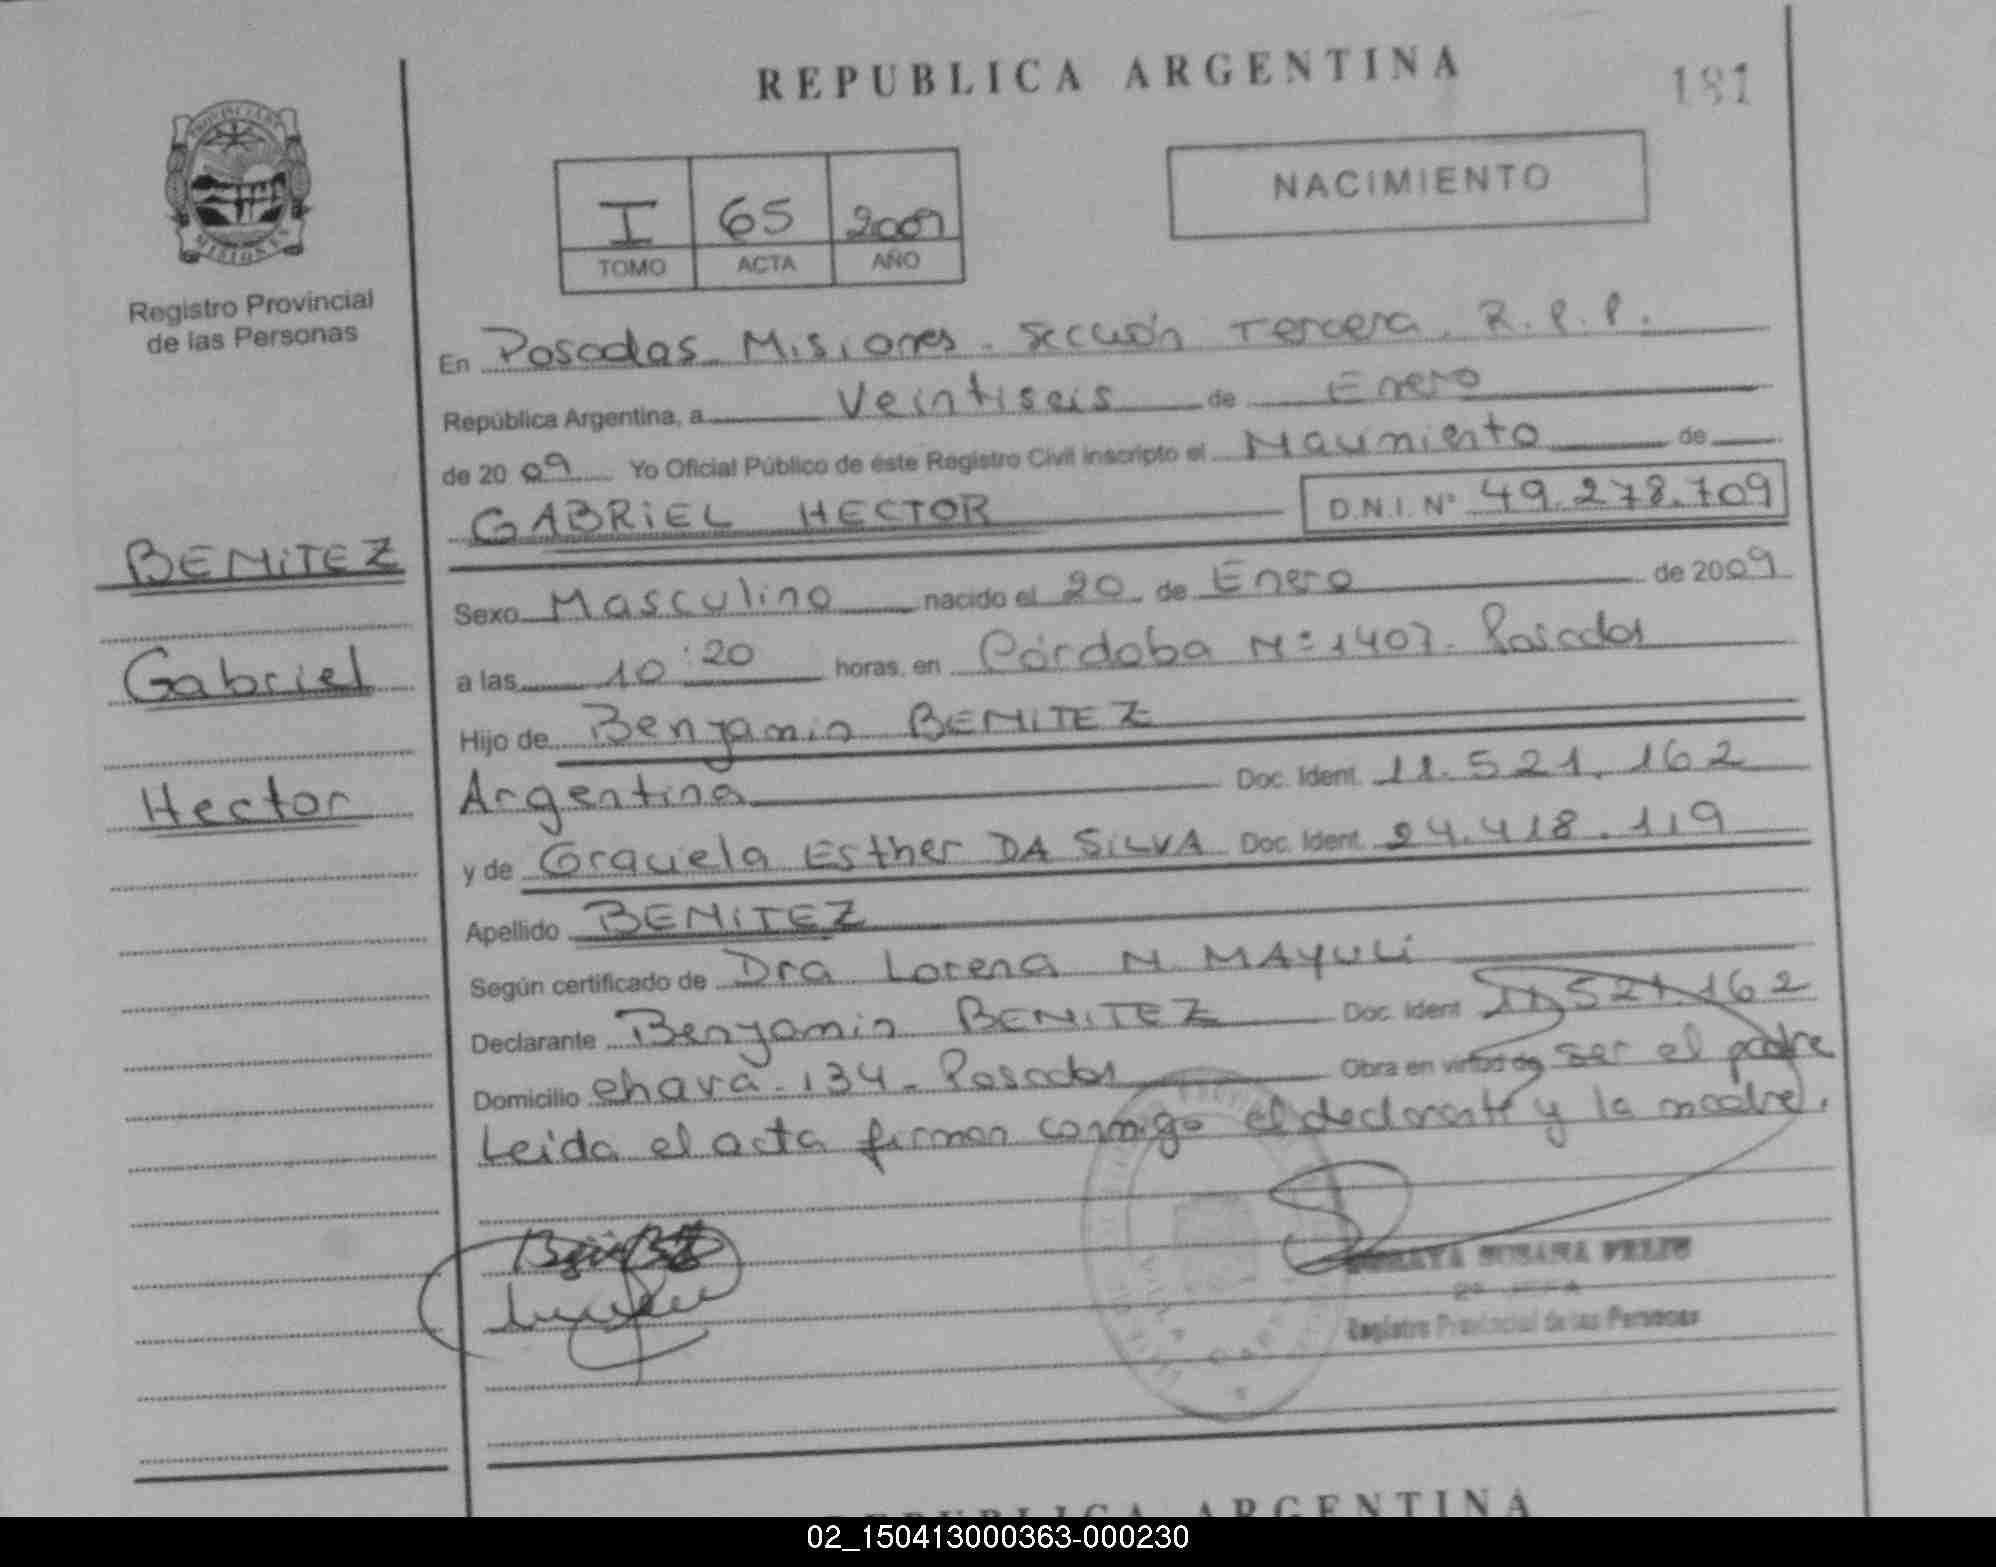 REPUBLICA ARGENTINA
181
PROVINCIA DE
MISIONES
Registro Provincial
de las Personas
I 65 2009
TOMO ACTA AÑO
NACIMIENTO
En Posadas Misiones - Sección Tercera. R.P.P.
República Argentina, a Veintiseis de Enero
de 2009 Yo Oficial Público de éste Registro Civil inscripto el Nacimiento de
GABRIEL HECTOR D.N.I. Nº 49.278.709
BENITEZ
Gabriel
Hector
Sexo Masculino nacido el 20 de Enero de 2009
a las 10:20 horas, en Córdoba Nº 1407 - Posadas
Hijo de Benjamin BENITEZ
Argentina Doc. Ident. 11.521.162
y de Graciela Esther DA SILVA Doc. Ident. 24.418.119
Apellido BENITEZ
Según certificado de Dra Lorena N. MAYULI
Declarante Benjamin BENITEZ Doc. Ident 11.521.162
Domicilio chava - 134 - Posadas Obra en virtud de ser el padre
Leida el acta firman conmigo el declarante y la madre.
SUSANA FELIU
Registro Provincial de las Personas
REPUBLICA ARGENTINA
02_150413000363-000230